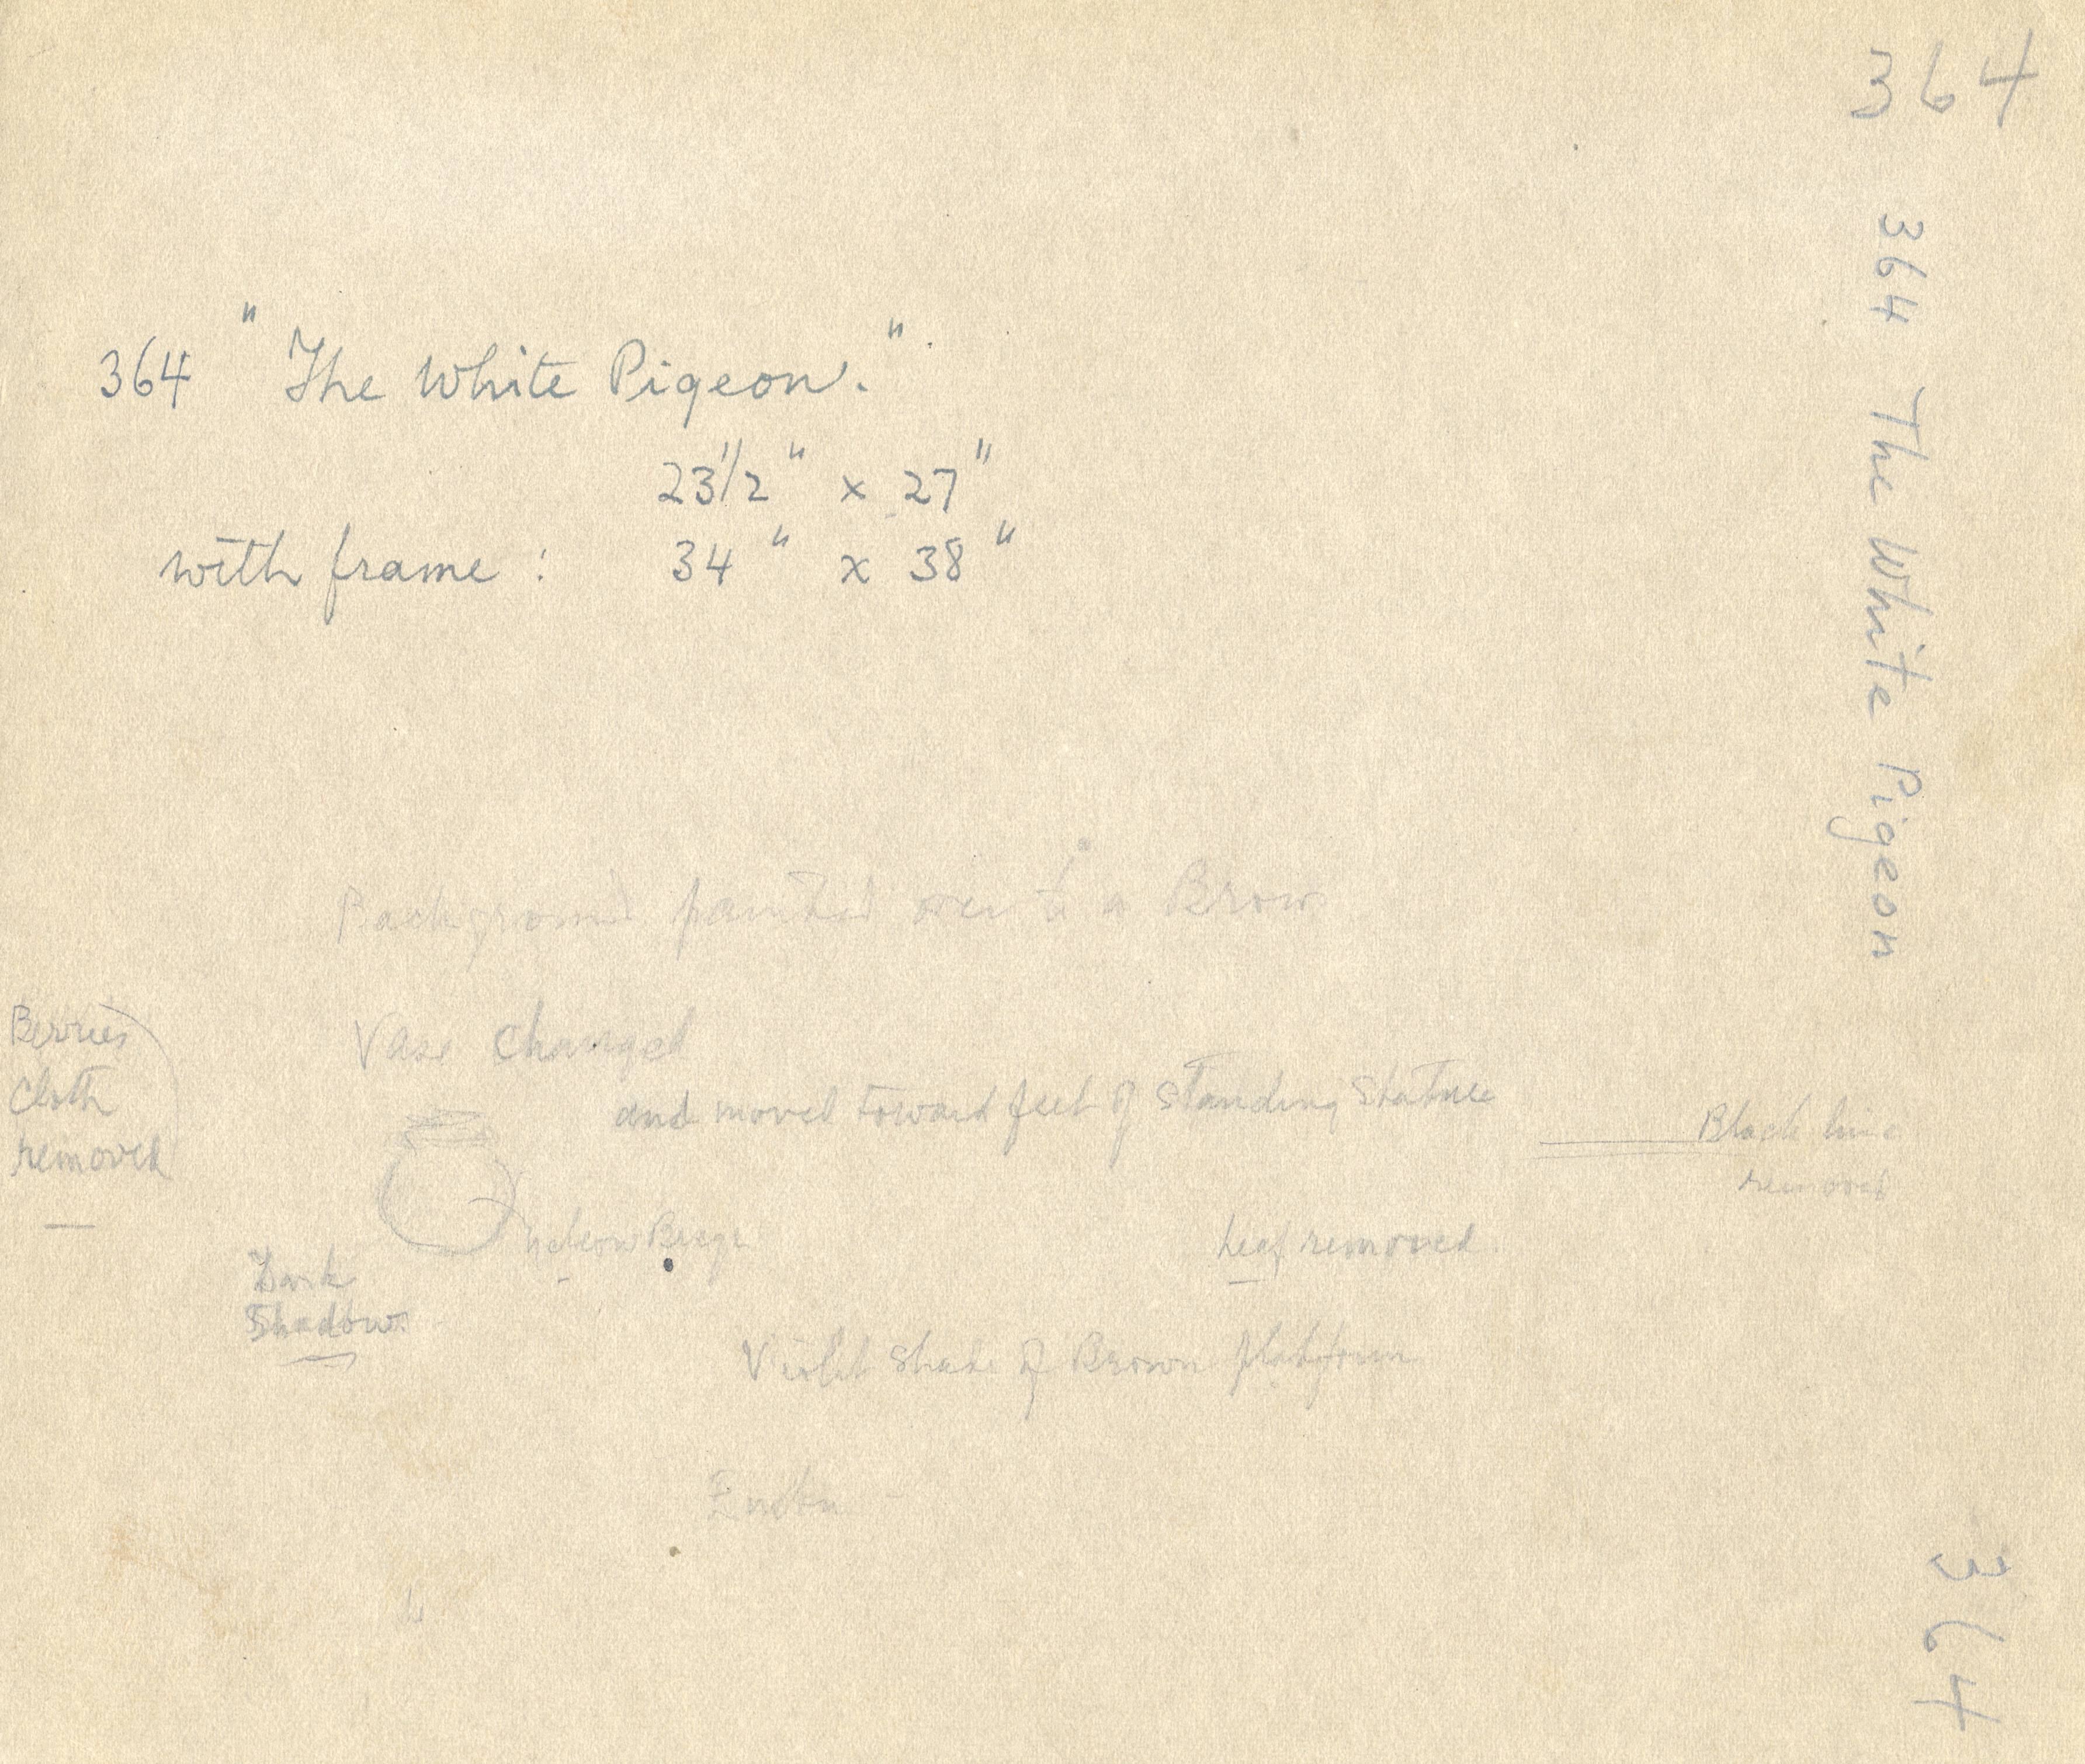 364
364 The White Pigeon
364 "The White Pigeon."
23 1/2" x 27"
with frame: 34" x 38"
Background painted over to a Brown
Vase changed
and moved toward feet of standing statue
Berries
Cloth
removed
Black line
removed
Leaf removed.
Dark
Shadow
Violet shade of Brown platform
364